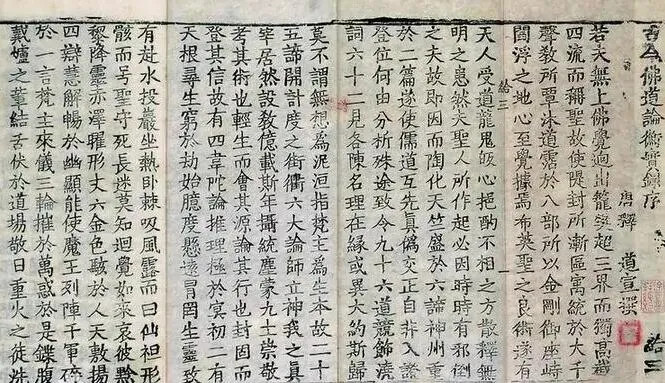 古今佛道論衡實錄序
唐釋 道宣撰
若夫無上佛覺迥出籠樊超三界而獨高截
四流而稱聖故使隄封所漸區寓統於大千
聲教所覃沐道霑於八部所以金剛御座峙
閻浮之地心至覺據焉布英聖之良術遂有
給三
天人受道龍鬼皈心挹酌不相之方散釋無
明之患然夫聖人所作起必因時時有邪倒
之夫故即因而陶化天竺盛於六諦神州重
於二篇遂使儒道互先真偽交正自非入證
登位何由分析殊途致令九十六道競飾澆
詞六十二見各陳名理在緣或異大約斯歸
莫不謂無想為泥洹指梵主為生本故二十
五諦開計度之街衢六大論師立神我之真
宰居然設教億載斯年攝統塵蒙九土崇敬
考其術也輕生而會其源論其行也封固而
登其信故有四韋陀論推理極於冥初二有
天根尋生窮於劫始臆度懸遠冒罔生靈致
有赴水投巖坐熱臥棘吸風露而曰仙袒形
骸而号聖守死長迷莫知迴覺如來哀彼黔
黎降靈赤澤曜形丈六金色駭於人天敷揚
四辯慧解暢於幽顯能使魔王列陣千軍碎
於一言梵主來儀三輪摧於萬惑於是鍱腹
戴爐之輩結舌伏於道場敬日重火之徒洗